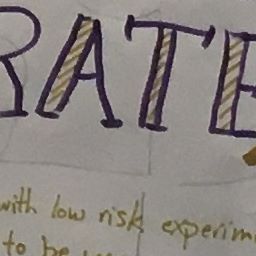 RATE
with low risk experim
to be